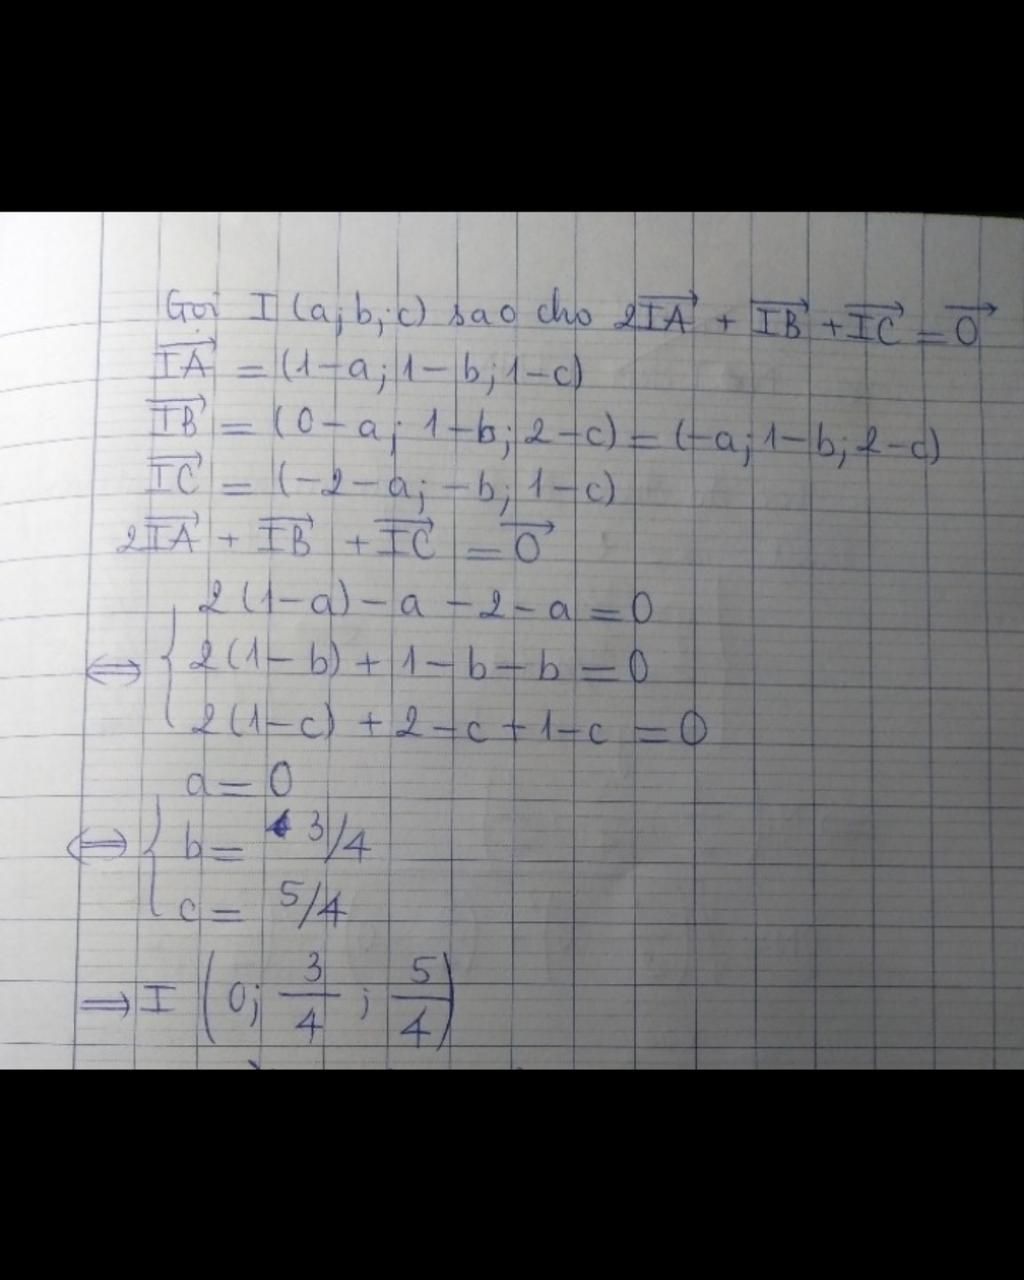 Gọi I (a;b;c) sao cho 2IA⃗ + IB⃗ + IC⃗ = 0⃗
IA⃗ = (1-a; 1-b; 1-c)
IB⃗ = (0-a; 1-b; 2-c) = (-a; 1-b; 2-c)
IC⃗ = (-2-a; -b; 1-c)
2IA⃗ + IB⃗ + IC⃗ = 0⃗
2(1-a) - a - 2 - a = 0
⇔ { 2(1-b) + 1 - b - b = 0
2(1-c) + 2 - c + 1 - c = 0
a = 0
⇔ { b = 3/4
c = 5/4
⇒ I (0; 3/4; 5/4)